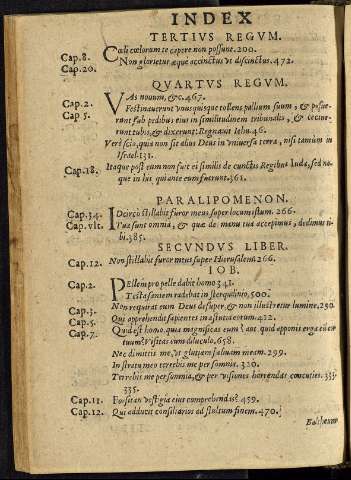 INDEX
TERTIVS REGVM.
Cap.8. Cœli cœlorum te capere non possunt.200.
Cap.20. Non glorietur æque accinctus vt discinctus.472.
QVARTVS REGVM.
Cap.2. VAs nouum, &c.467.
Cap 5. Festinauerunt vnusquisque tollens pallium suum, & posue-
runt sub pedibus eius in similitudinem tribunalis, & cecine-
runt tuba, & dixerunt: Regnauit Iehu.46.
Vere scio, quia non sit alius Deus in vniuersa terra, nisi tantum in
Israel.131.
Cap.18. Itaque post eum non fuit ei similis de cunctis Regibus Iuda, sed ne-
que in his qui ante eum fuerunt.361.
PARALIPOMENON.
Cap.34. IDcirco stillabit furor meus super locum istum. 266.
Cap.vlt. Tua sunt omnia, & quæ de manu tua accepimus, dedimus ti-
bi.385.
SECVNDVS LIBER.
Cap.12. Non stillabit furor meus super Hierusalem 266.
IOB.
Cap.2. PEllem pro pelle dabit homo 341.
Testa saniem radebat in sterquilinio, 500.
Cap.3. Non requirat eum Deus desuper, & non illustretur lumine.250.
Cap.5. Qui apprehendit sapientes in astutia eorum.422.
Cap.7. Quid est homo, quia magnificas eum? aut quid apponis erga eũ cor
tuum? Visitas eum diluculo.658.
Nec dimittis me, vt glutiam saliuam meam.299.
In stratu meo terrebis me per somnia. 320.
Terrebis me per somnia, & per visiones horrendas concuties. 333.
335.
Cap.11. Forsitan vestigia eius comprehendis? 459.
Cap.12. Qui adducit consiliarios ad stultum finem.470.
Baltheum